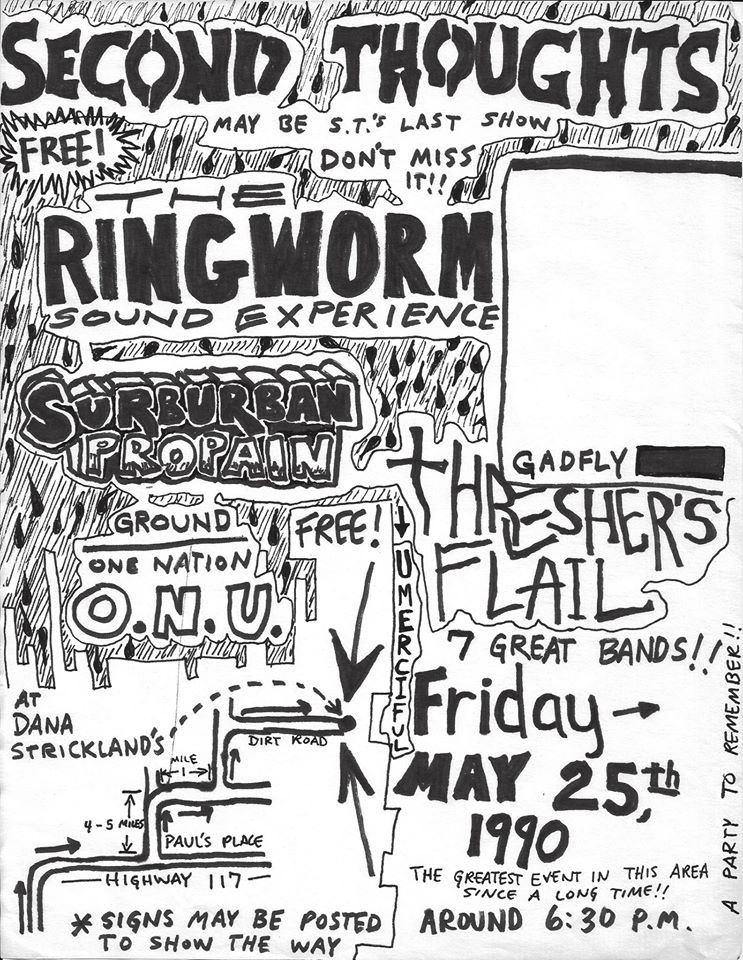 SECOND THOUGHTS
MAY BE S.T.'s LAST SHOW
FREE!
DON'T MISS
IT!!
THE
RINGWORM
SOUND EXPERIENCE
SURBURBAN
PROPAIN
GADFLY
THRESHER'S
FLAIL
GROUND
ONE NATION
O.N.U.
FREE!
UMERCIFUL
7 GREAT BANDS!!
Friday
MAY 25,th
1990
THE GREATEST EVENT IN THIS AREA
SINCE A LONG TIME!!
AROUND 6:30 P.M.
A PARTY TO REMEMBER!!
AT
DANA
STRICKLAND'S
DIRT ROAD
MILE
1
4-5 MILES
PAUL'S PLACE
HIGHWAY 117
* SIGNS MAY BE POSTED
TO SHOW THE WAY